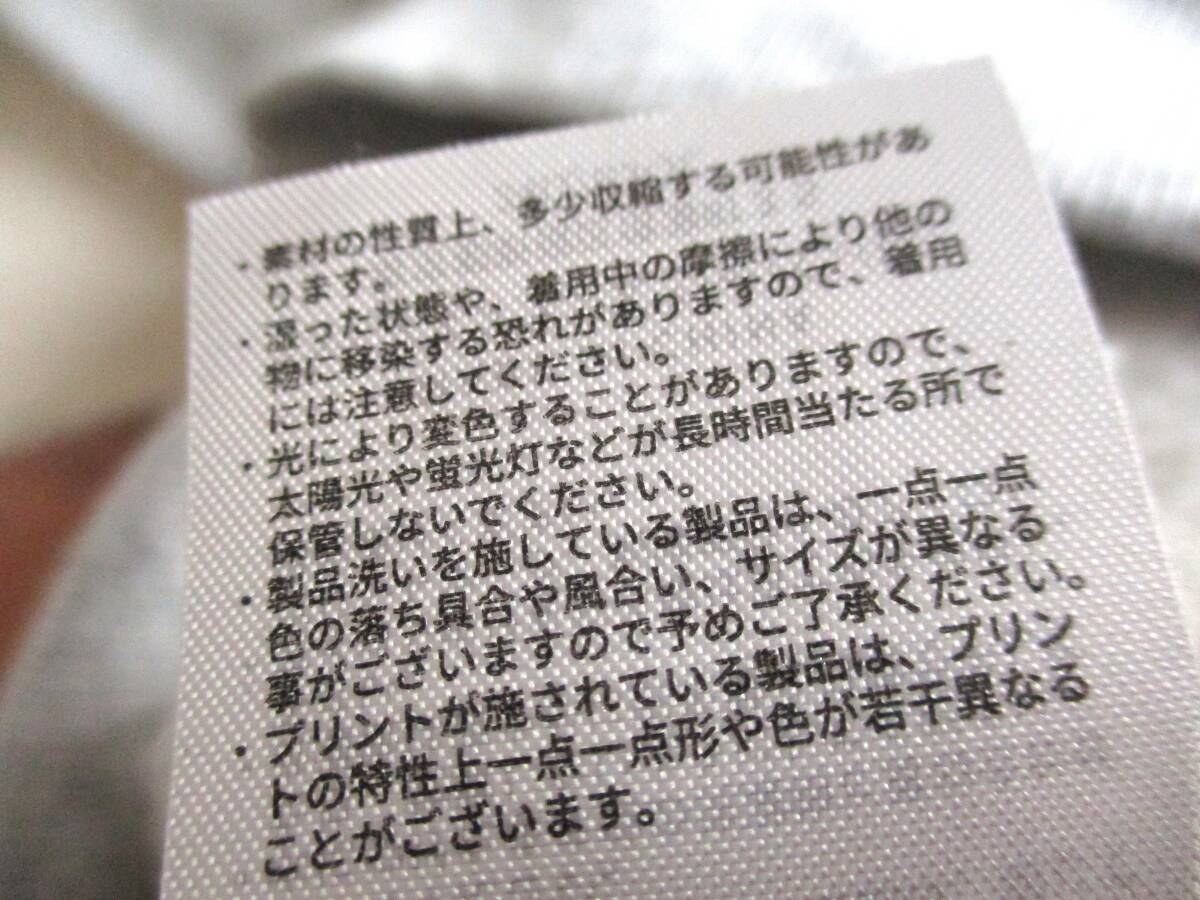 ・素材の性質上、多少収縮する可能性があ
ります。
・湿った状態や、着用中の摩擦により他の
物に移染する恐れがありますので、着用
には注意してください。
・光により変色することがありますので、
太陽光や蛍光灯などが長時間当たる所で
保管しないでください。
・製品洗いを施している製品は、一点一点
色の落ち具合や風合い、サイズが異なる
事がございますので予めご了承ください。
・プリントが施されている製品は、プリン
トの特性上一点一点形や色が若干異なる
ことがございます。